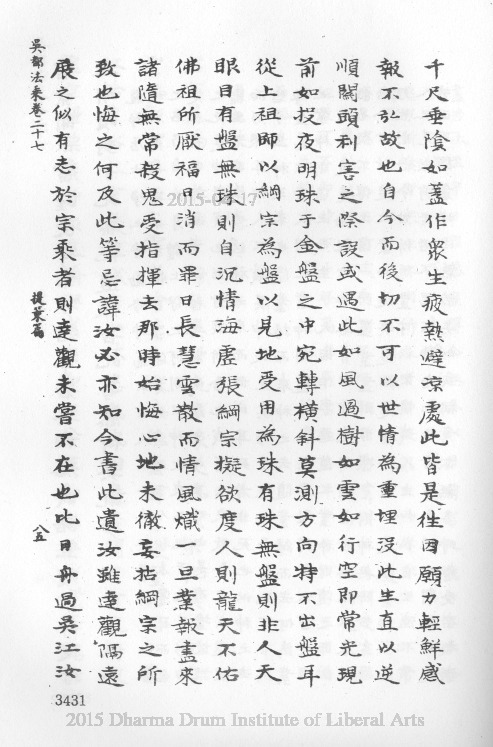 千尺垂陰如蓋作眾生疲熱避凉處此皆是徃因願力輕鮮感
報不弘故也自今而後切不可以世情為重埋沒此生直以逆
順關頭利害之際設或遇此如風過樹如雲如行空即常光現
前如投夜明珠于金盤之宛轉橫斜莫測方向特不出盤耳
從上祖師以綱宗為盤以見地受用為珠有珠無盤則非人天
眼目有盤無珠則自沉情海虛張綱宗擬欲度人則龍天不佑
佛祖所厭福日消而罪日長慧雲散而情風熾一旦業報盡來
諸隨無常殺鬼受指揮去那時始悔心地未徹妄拈綱宗之所
致也悔之何及此等忌諱汝必亦知今書此遺汝雖達觀隔遠
展之似有志於宗乘者則達觀未嘗不在也此日舟過吳江汝
吳都法乘卷二十七
提葉篇
八五
3431
2015-04-17
2015 Dharma Drum Institute of Liberal Arts